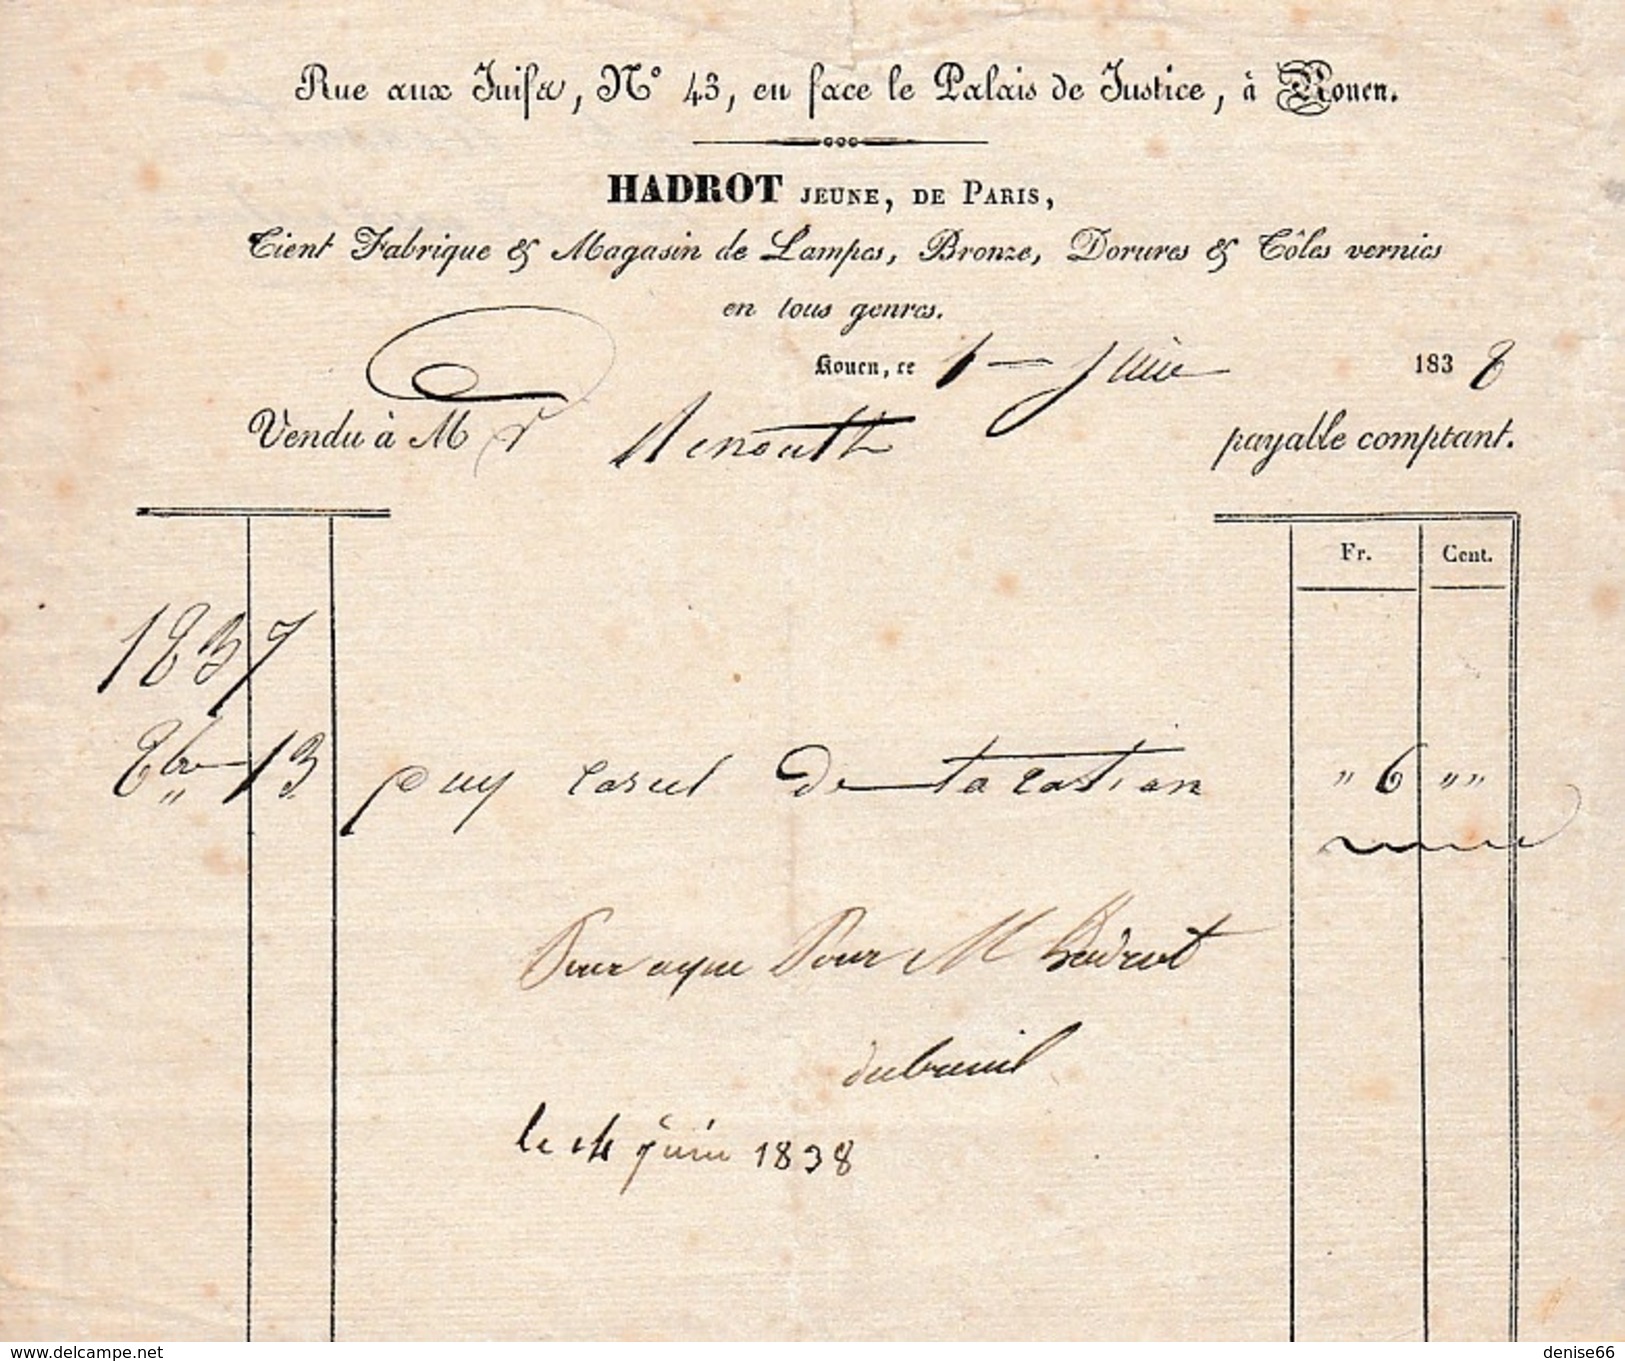 Rue aux Juifs, N° 43, en face le Palais de Justice, à Rouen.
HADROT JEUNE, DE PARIS,
Tient Fabrique & Magasin de Lampes, Bronze, Dorures & Tôles vernies
en tous genres.
Rouen, ce 1 Juin 1838
Vendu à Mr payable comptant.
Fr. Cent.
1837
8bre 13 de " 6 " "
Pour aquit Pour M hadrot
dubreuil
le 14 juin 1838
www.delcampe.net
denise66